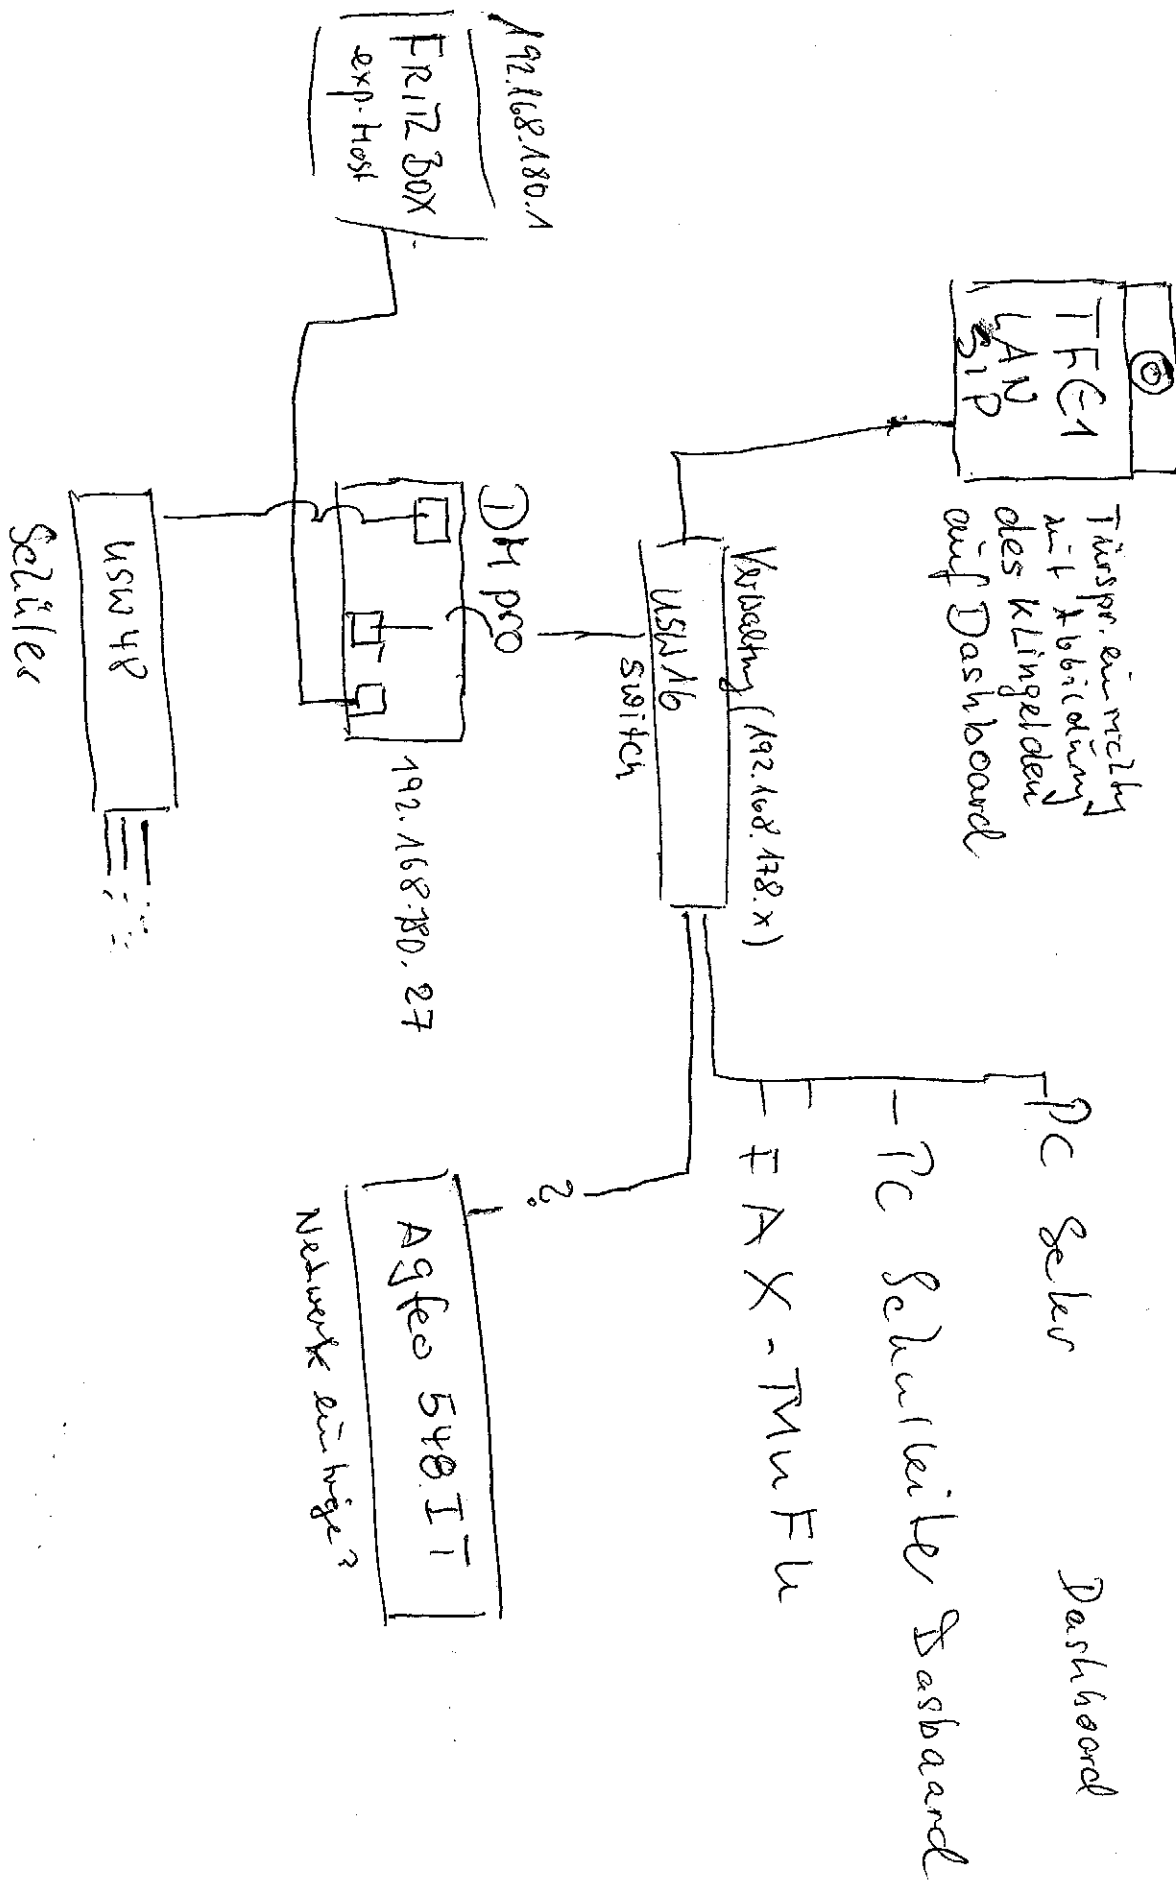 192.168.180.1
FRITZ BOX
exp. Host
TFE1
LAN
SIP
Türspr. einrichty
mit Abbildung
des Klingelden
auf Dashboard
DM pro
192.168.180.27
USW 48
Schüler
Verwaltung (192.168.178.x)
USW 16
switch
PC Sekr Dashboard
- PC Schulleiter Dasbaard
FAX - MuFu
?
Agfeo 548 IT
Netzwerk einträge?